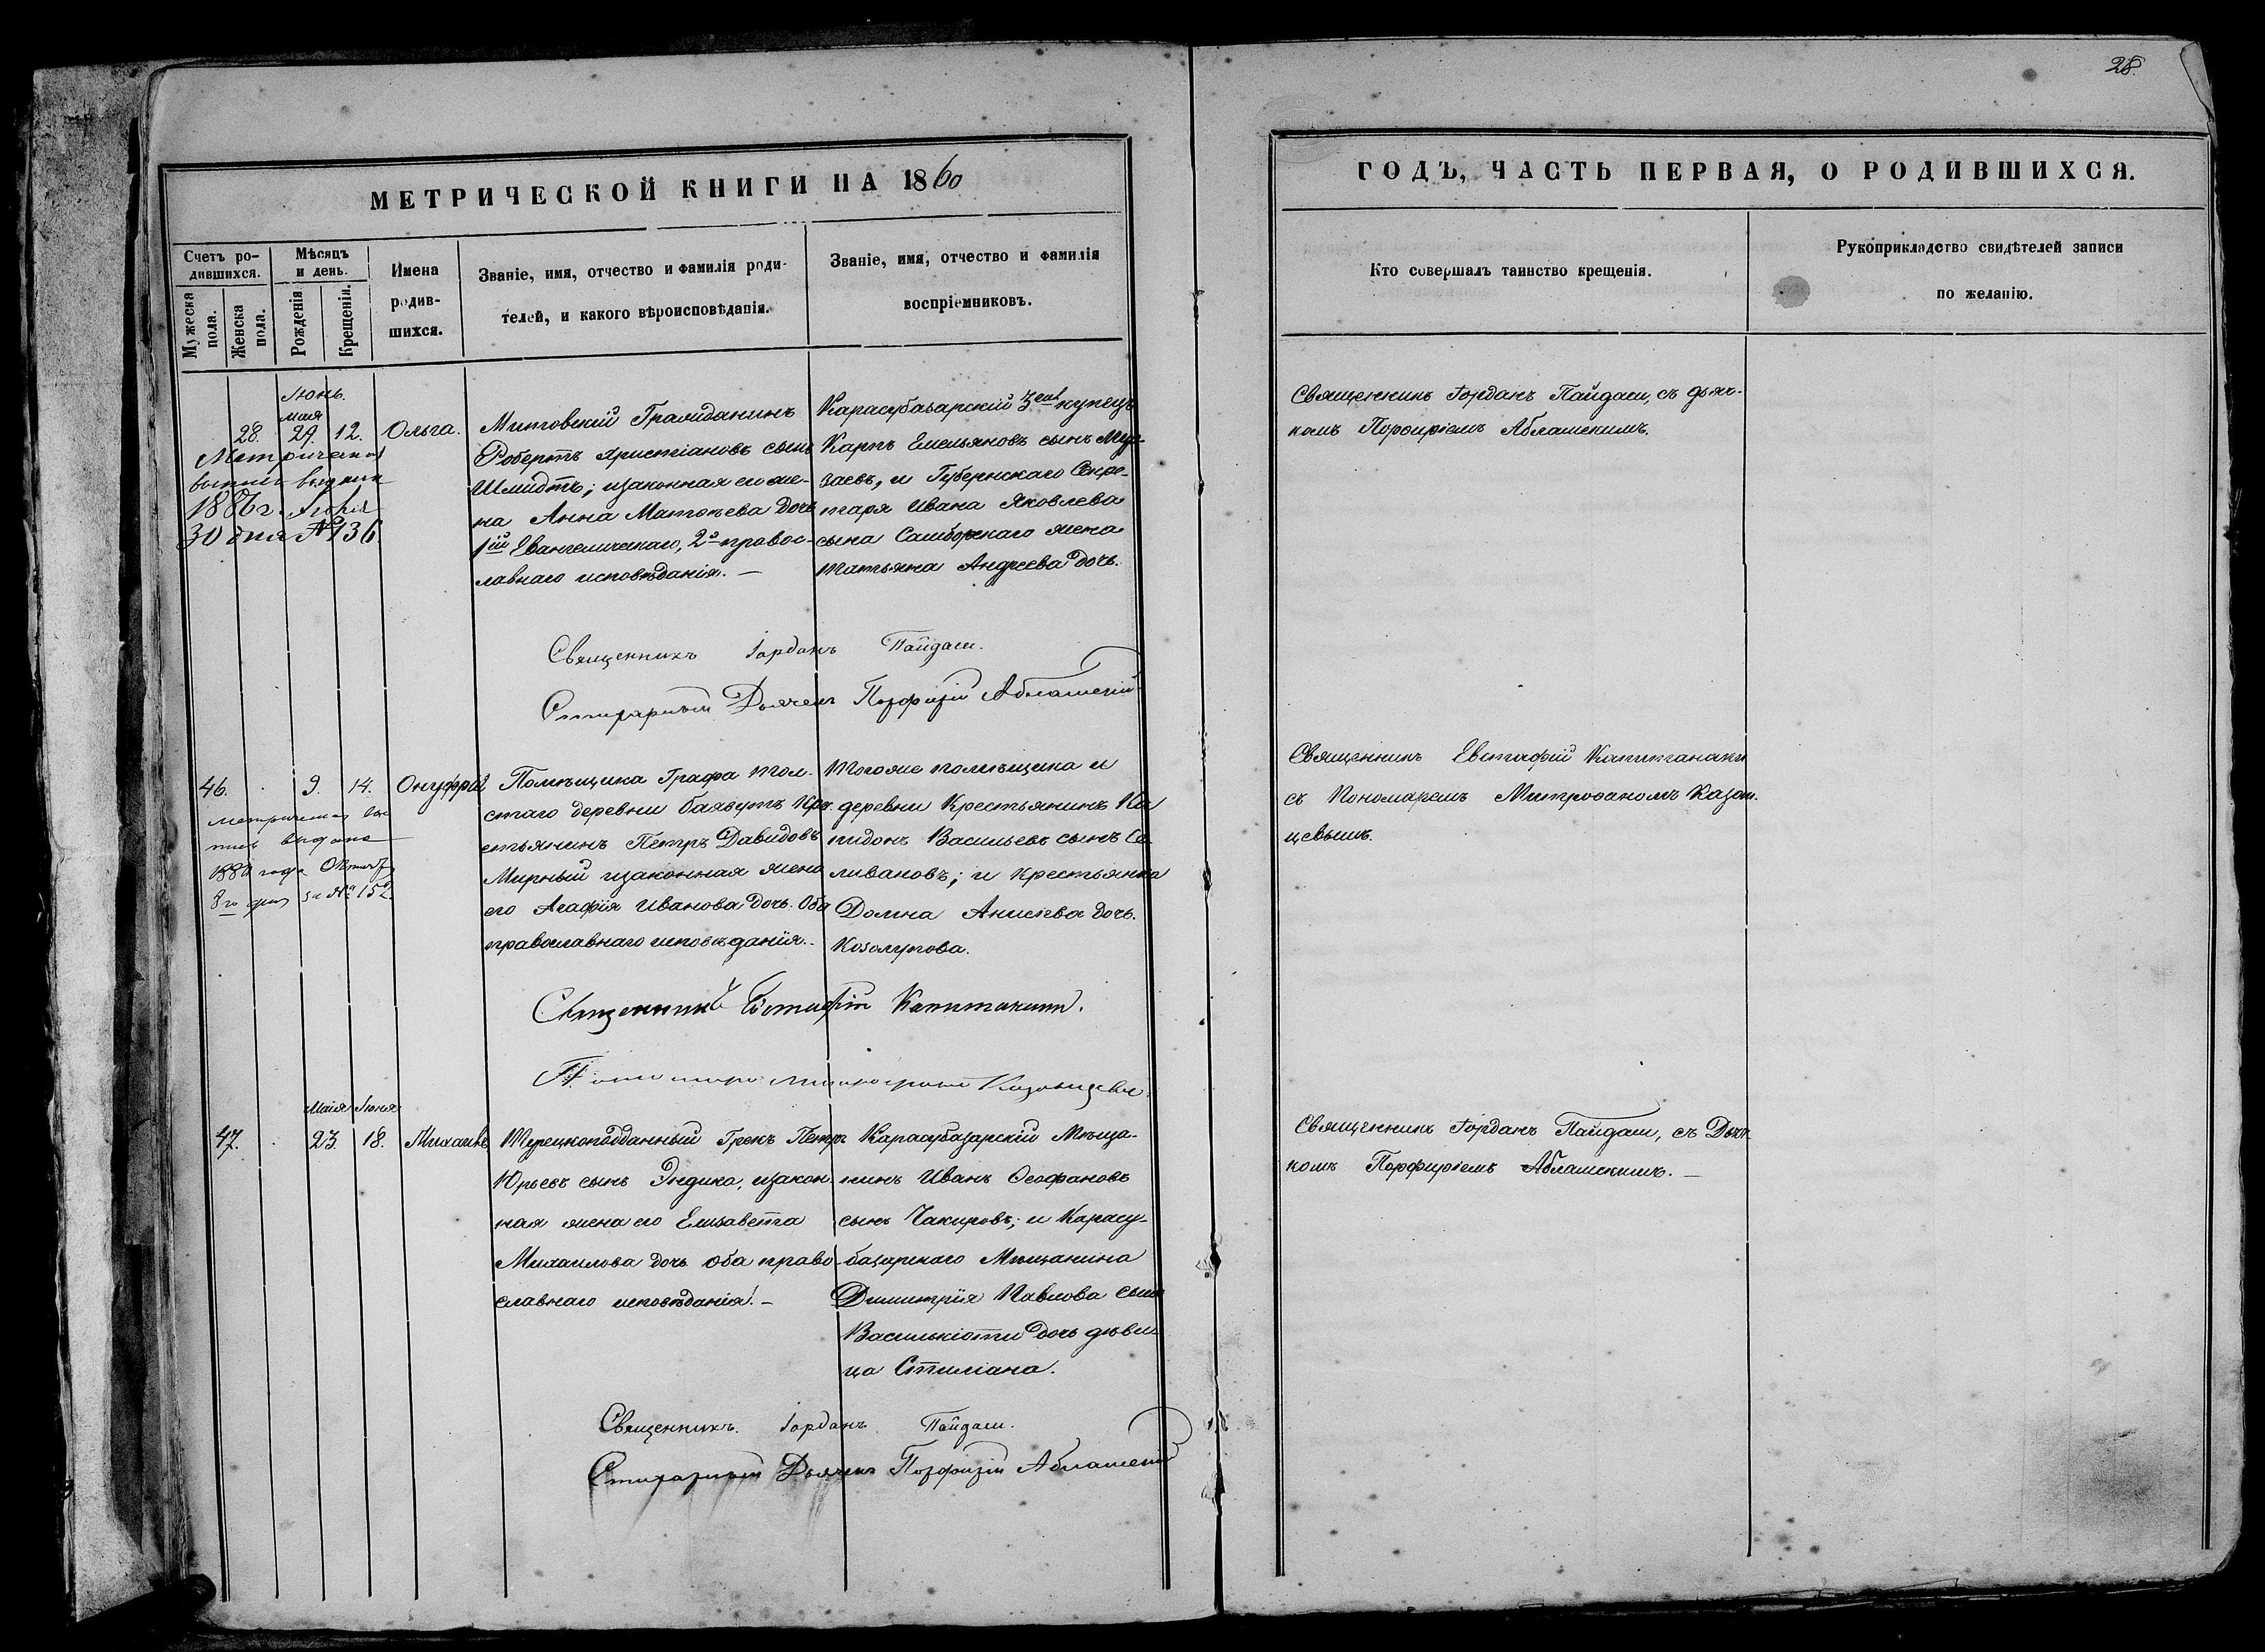 28.
МЕТРИЧЕСКОЙ КНИГИ НА 1860
ГОДЪ, ЧАСТЬ ПЕРВАЯ, О РОДИВШИХСЯ.
Счетъ ро-
дившихся.
Мужеска
пола.
Женска
пола.
Мѣсяцъ
и день.
Рожденія.
Крещенія.
Имена
родив-
шихся.
Званіе, имя, отчество и фамилія роди-
телей, и какого вѣроисповѣданія.
Званіе, имя, отчество и фамилія
воспріемниковъ.
Кто совершалъ таинство крещенія.
Рукоприкладство свидѣтелей записи
по желанію.
Іюнь.
мая
28. 29. 12. Ольга.
Метрическая
выпись выдана
1886 г. Іюня
30 дня № 136
Митовскій Гражданинъ
Робертъ Христіановъ сынъ
Шмидтъ; изаконная его же-
на Анна Матвѣева дочь
1ій Евангелическаго, 2я правос-
лавнаго исповѣданія. —
Карасубазарскій 3ей купецъ
Карпъ Емельяновъ сынъ
заевъ, и Губернскаго Секре-
таря Ивана Яковлева
сына Самборскаго жена
Татьяна Андреева дочь.
Священникъ Іорданъ Пайдаси, съ дьяч-
комъ Порфиріемъ Аблашскимъ.
Священникъ Іорданъ Пайдаси.
Дьячекъ Порфирій Аблашскій
46. 9. 14. Онуфрій
метрическая вы
пись выдана
года Октяб
8го дня за № 152
Помѣщика Графа Тол-
стаго деревни Баявутъ Кре-
стьянинъ Петръ Давидовъ
Мирный изаконная жена
его Агафія Иванова дочь. Оба
православнаго исповѣданія.-
Тогоже помѣщика и
деревни Крестьянинъ Ка
пидонъ Васильевъ сынъ Се
ливановъ; и крестьянка
Домна Анисіева дочь.
Козолупова.
Священникъ Евстафій Капитанаки
съ Пономаремъ Митрофаномъ Казан-
цевымъ.
Священникъ Евстафій Капитанаки.
Пономарь Митрофанъ Казанцевъ.
Маія Іюня
47. 23. 18. Михаилъ
Турецкоподданный Грекъ Петръ
Юрьевъ сынъ Эндико, изакон
ная жена его Елисавета
Михаилова дочь оба право
славнаго исповѣданія. —
Карасубазарскій Мѣща-
нинъ Иванъ Феофановъ
сынъ Чакировъ; и Карасу-
базарскаго Мѣщанина
Димитрія Павлова сына
Василькіоти дочь дѣви-
ца Стиліана.
Священникъ Іорданъ Пайдаси, съ Дьяч-
комъ Порфиріемъ Аблашскимъ. —
Священникъ. Іорданъ Пайдаси.
Дьячекъ Порфирій Аблашскій